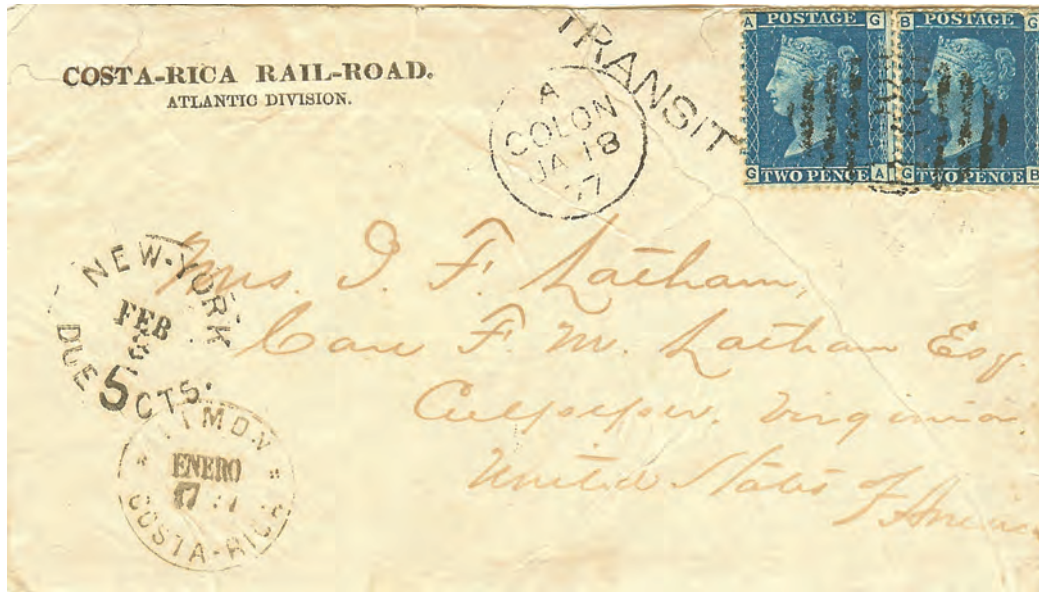 COSTA-RICA RAIL-ROAD.
ATLANTIC DIVISION.
TRANSIT
A
COLON
JA 18
77
A POSTAGE G
G TWO PENCE A
B POSTAGE G
G TWO PENCE B
NEW-YORK
FEB
DUE 5 CTS.
LIMON
ENERO
17
COSTA-RICA
Mrs. I. F. Latham,
Care F. M. Latham Esq.
Culpeper. Virginia.
United States of